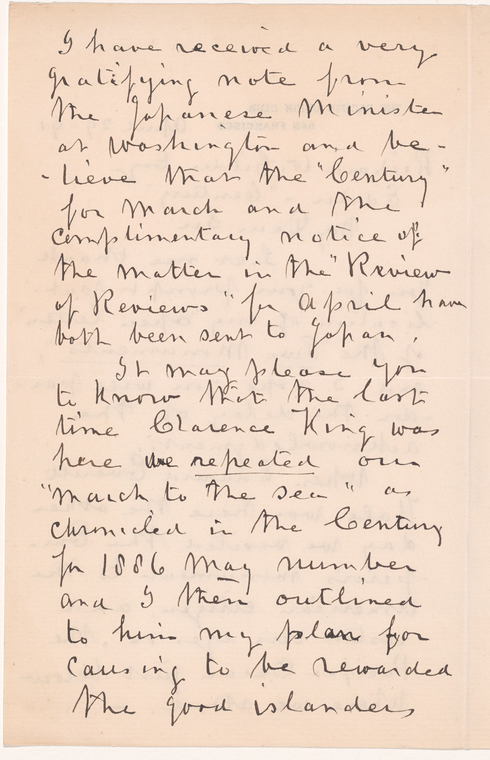 I have received a very
gratifying note from
the Japanese Minister
at Washington and be-
-lieve that the "Century"
for March and the
complimentary notice of
the matter in the "Review
of Reviews" for April have
both been sent to Japan.
It may please you
to know that the last
time Clarence King was
here we repeated our
"march to the sea" as
chronicled in the Century
for 1886 May number
and I then outlined
to him my plan for
causing to be rewarded
the good islanders